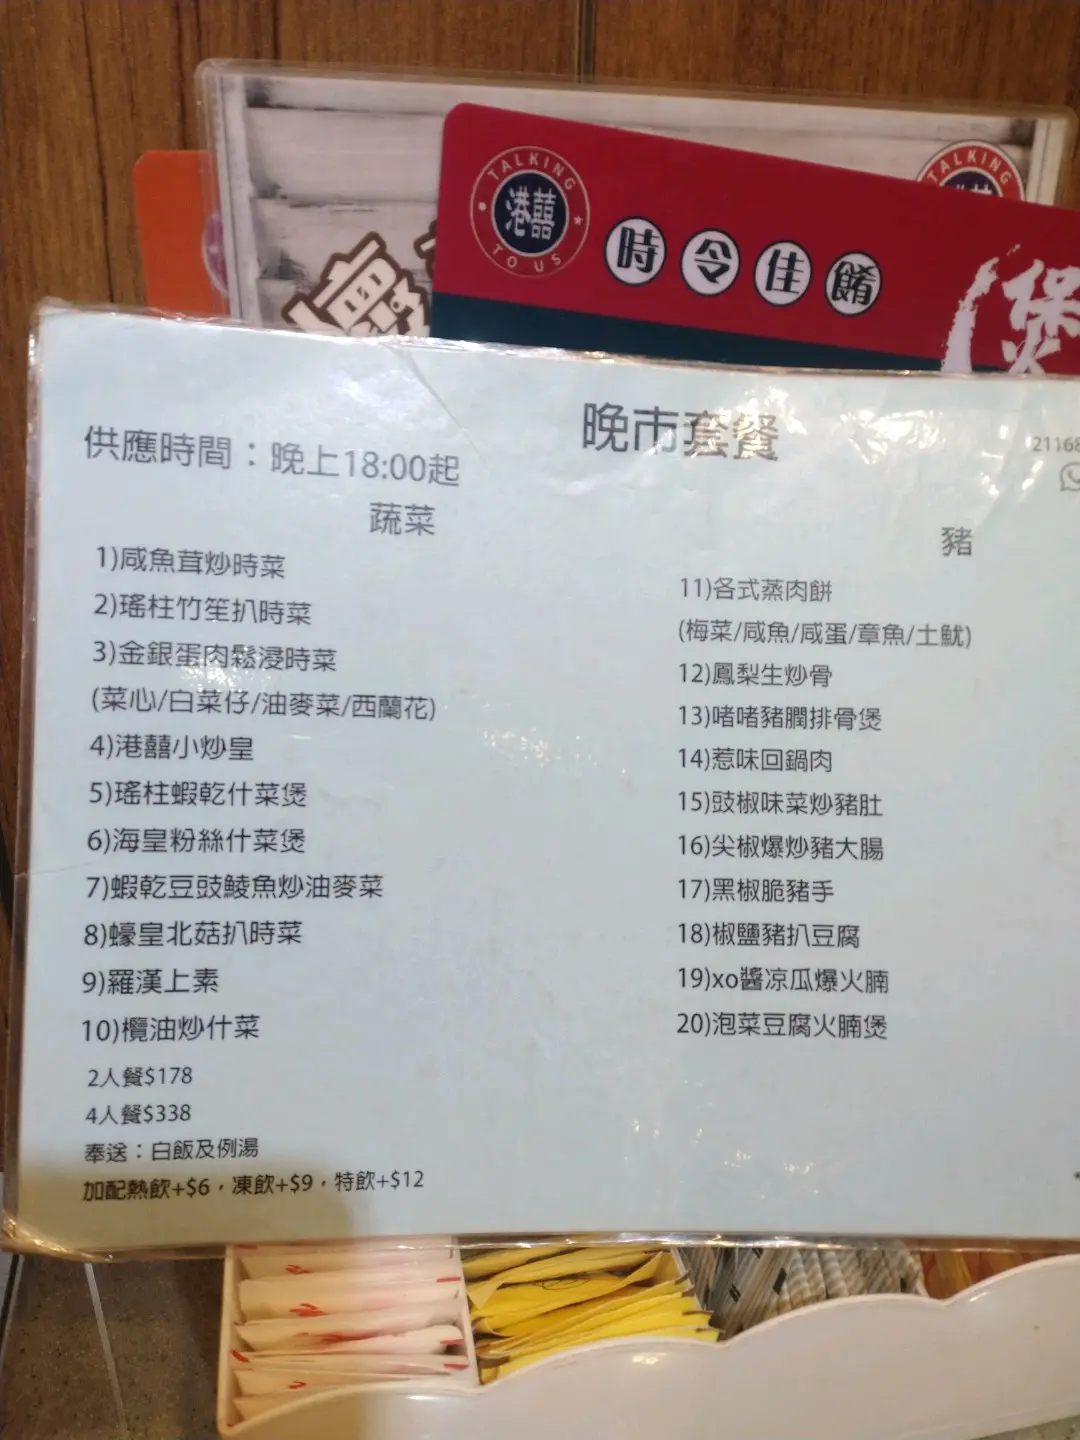 TALKING
港囍
TO US
時令佳餚
煲
TALKING
晚市套餐
供應時間：晚上18:00起
21168
蔬菜
1)咸魚茸炒時菜
2)瑤柱竹笙扒時菜
3)金銀蛋肉鬆浸時菜
(菜心/白菜仔/油麥菜/西蘭花)
4)港囍小炒皇
5)瑤柱蝦乾什菜煲
6)海皇粉絲什菜煲
7)蝦乾豆豉鯪魚炒油麥菜
8)蠔皇北菇扒時菜
9)羅漢上素
10)欖油炒什菜
2人餐$178
4人餐$338
奉送：白飯及例湯
加配熱飲+$6，凍飲+$9，特飲+$12
豬
11)各式蒸肉餅
(梅菜/咸魚/咸蛋/章魚/土魷)
12)鳳梨生炒骨
13)啫啫豬膶排骨煲
14)惹味回鍋肉
15)豉椒味菜炒豬肚
16)尖椒爆炒豬大腸
17)黑椒脆豬手
18)椒鹽豬扒豆腐
19)xo醬凉瓜爆火腩
20)泡菜豆腐火腩煲